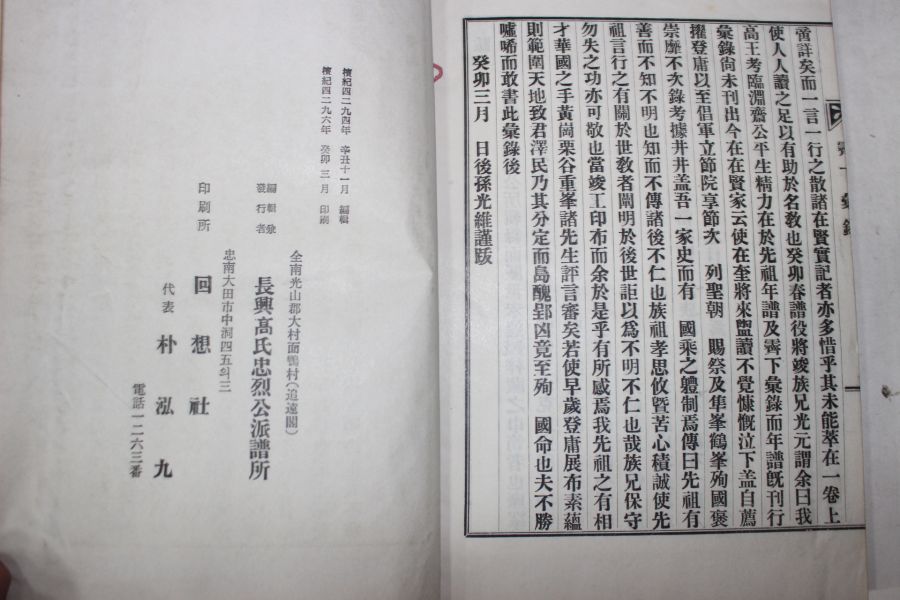 嘗詳矣而一言一行之散諸在賢實記者亦多惜乎其未能萃在一卷上
使人人讀之足以有助於名敎也癸卯春譜役將竣族兄光元謂余曰我
高王考臨淵齋公平生精力在於先祖年譜及霽下彙錄而年譜旣刊行
彙錄尙未刊出今在在賢家云使在奎將來盥讀不覺慷慨泣下盖自薦
擢登庸以至倡軍立節院享節次 列聖朝 賜祭及隼峯鶴峯殉國褒
崇靡不次錄考據井井盖吾一家史而有 國乘之軆制焉傳曰先祖有
善而不知不明也知而不傳諸後不仁也族祖孝思攸曁苦心積誠使先
祖言行之有關於世敎者闡明於後世詎以爲不明不仁也哉族兄保守
勿失之功亦可敬也當竣工印布而余於是乎有所感焉我先祖之有相
才華國之手黃崗栗谷重峯諸先生評言審矣若使早歲登庸展布素蘊
則範圍天地致君澤民乃其分定而島醜郢凶竟至殉 國命也夫不勝
噓唏而敢書此彙錄後
癸卯三月 日後孫光維謹跋
檀紀四二九四年 辛丑十一月 編輯
檀紀四二九六年 癸卯三月 印刷
編輯兼
發行者
全南光山郡大村面鴨村(追遠閣)
長興高氏忠烈公派譜所
忠南大田市中洞四五의三
印刷所 回想社
代表 朴泓九
電話一二六三番